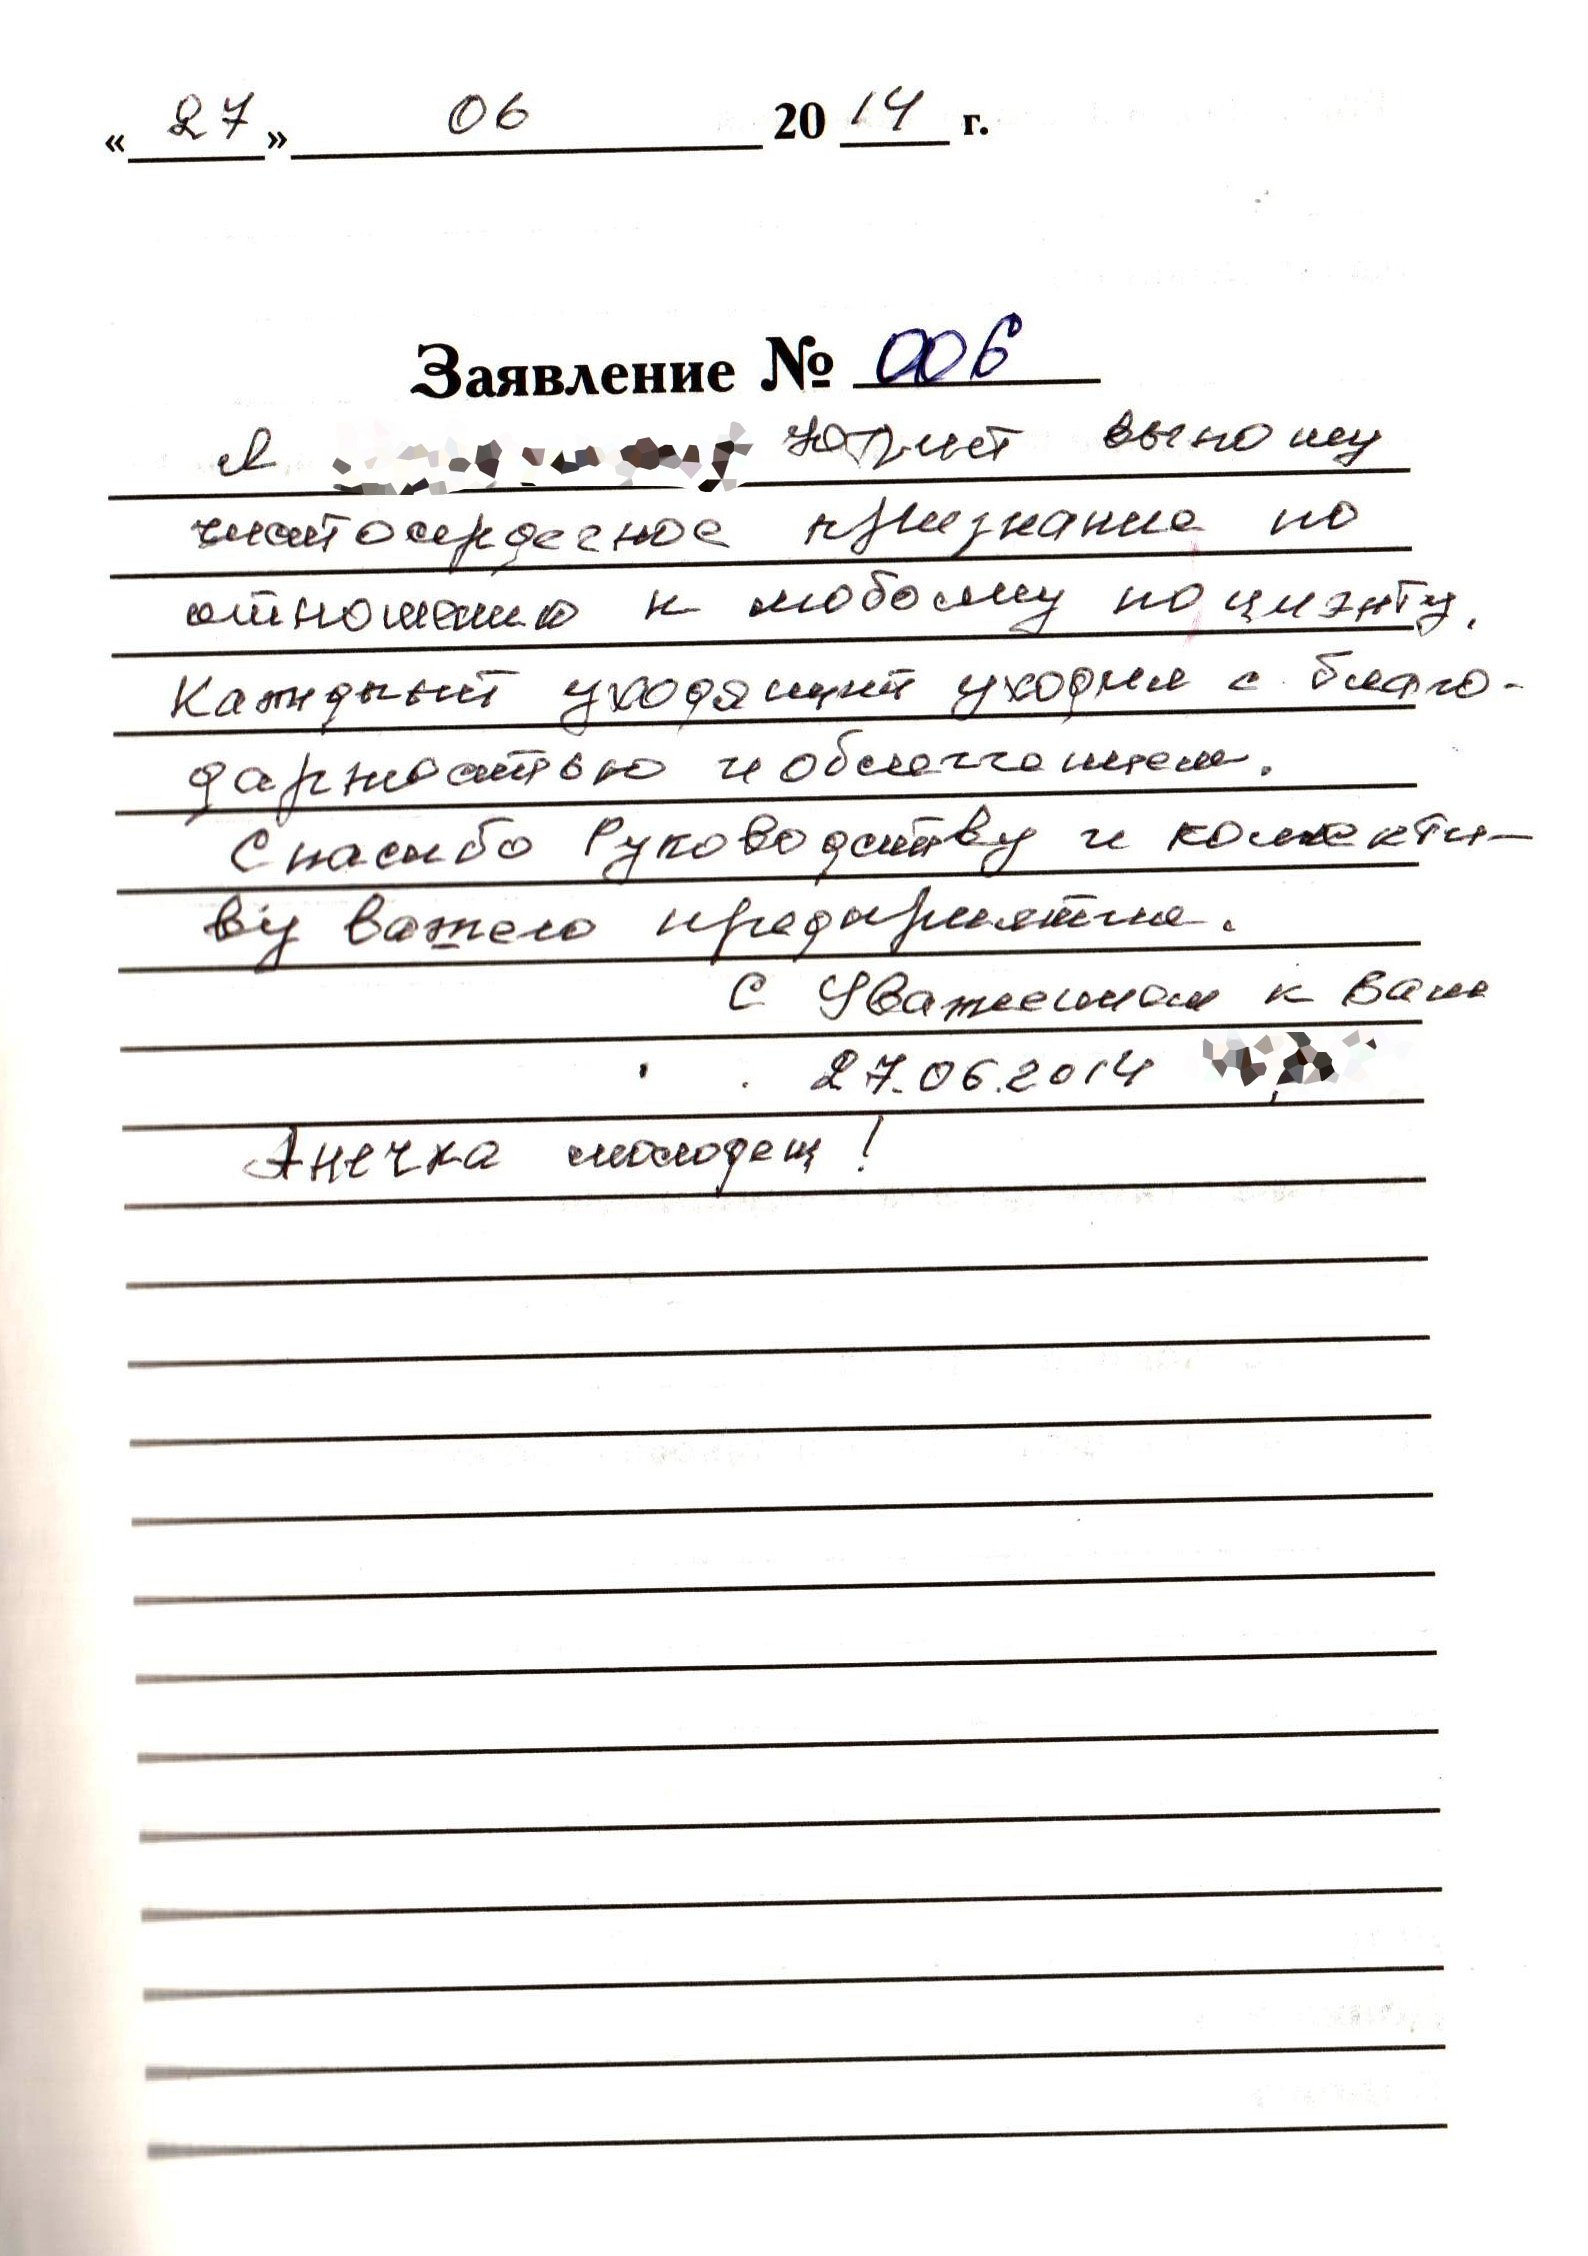 « 27 » 06 20 14 г.
Заявление № 006
Я Юрист выношу
чистосердечное признание по
отношению к любому поциэнту.
Каждый уходящий уходил с благо-
дарностью и облегчением.
Спасибо Руководству и коллекти-
ву вашего предприятия.
С Уважением к Вам
27.06.2014
Анечка молодец!